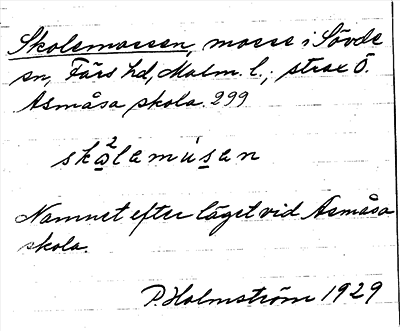 Skolemossen, mosse i Sövde
sn, Färs hd, Malm. l.; strax Ö.
Asmåsa skola. 299
skɑ²lamusan
Namnet efter läget vid Asmåsa
skola.
P. Holmström 1929